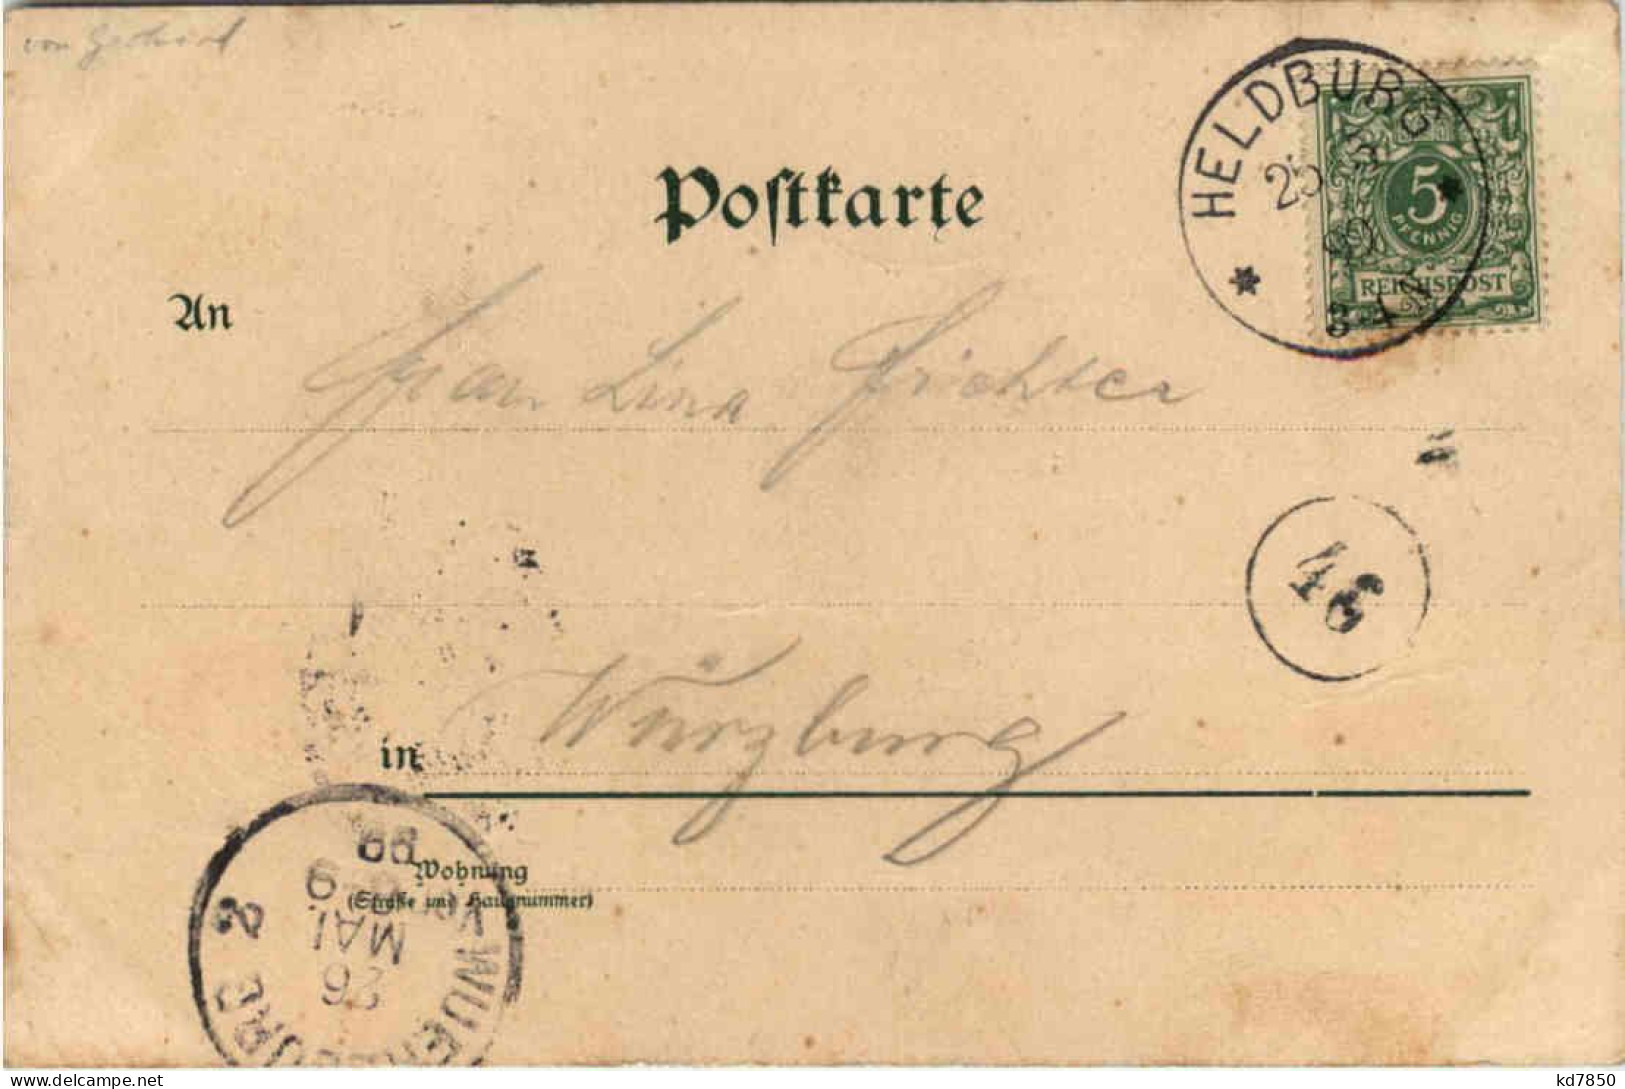 von
HELDBURG
25 5
99
5
PFENNIG
REICHSPOST
Postkarte
An
Frau Lina Frichter
46
in Würzburg
Wohnung
(Straße und Hausnummer)
WUERZBURG 2
26
MAI
99
kd7850